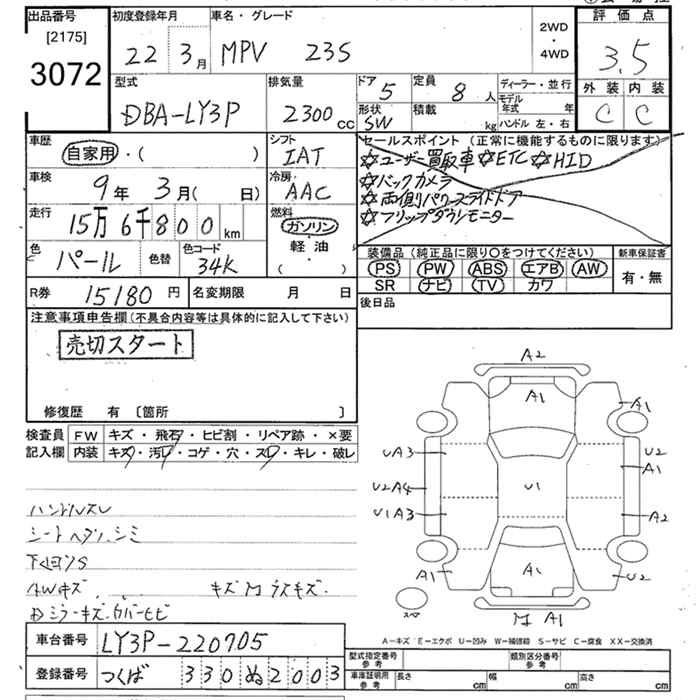 出品番号
[2175]
3072
初度登録年月
22 3月
車名・グレード
MPV 23S
2WD
・
4WD
評価点
3.5
外装 内装
C C
型式
DBA-LY3P
排気量
2300cc
ドア 5
形状 SW
定員 8人
積載 kg
ディーラー・並行
モデル年式 年
ハンドル 左・右
車歴
自家用・( )
車検
9年 3月( 日)
走行
15万6千800km
色
パール
色替
色コード
34K
シフト
IAT
冷房
AAC
燃料
ガソリン
・
軽・油
( )
セールスポイント(正常に機能するものに限ります)
☆ユーザー買取車 ☆ETC ☆HID
☆バックカメラ
☆両側パワースライドドア
☆フリップダウンモニター
装備品(純正品に限り○をつけてください)
PS PW ABS エアB AW
SR ナビ TV カワ
新車保証書
有・無
R券 15180円
名変期限 月 日
後日品
注意事項申告欄(不具合内容等は具体的に記入して下さい)
売切スタート
修復歴 有 〔箇所 〕
検査員記入欄
FW キズ・飛石・ヒビ割・リペア跡・×要
内装 キズ・汚レ・コゲ・穴・スレ・キレ・破レ
ハンドルスレ
下回りS
AWキズ
A2
A1
A1
UA3
U2
A1
U2A4
U1
U1A3
A2
A1
A1
U2
スペア
A1
A-キズ E-エクボ U-凹み W-補修跡 S-サビ C-腐食 XX-交換済
車台番号 LY3P-220705
登録番号 つくば 330 ぬ 2003
型式指定番号 参考
類別区分番号 参考
車庫証明用 参考
長さ cm
幅 cm
高さ cm